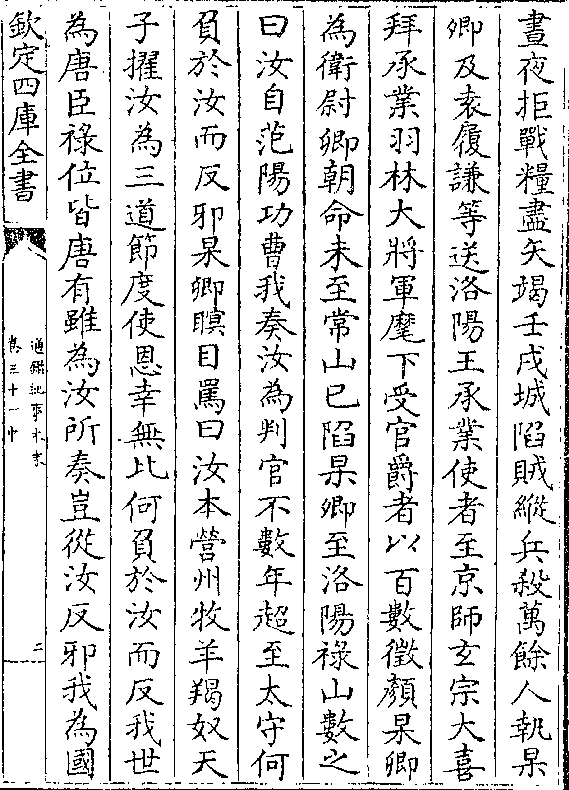 晝夜拒戰糧盡矢竭壬戌城陷賊縱兵殺萬餘人執杲
卿及袁履謙等送洛陽王承業使者至京師玄宗大喜
拜承業羽林大將軍麾下受官爵者以百數徵顏杲卿
為衛尉卿朝命未至常山已陷杲卿至洛陽祿山數之
曰汝自范陽功曹我奏汝為判官不數年超至太守何
負於汝而反邪杲卿瞋目罵曰汝本營州牧羊羯奴天
子擢汝為三道節度使恩幸無比何負於汝而反我世
為唐臣祿位皆唐有雖為汝所奏豈從汝反邪我為國
欽定四庫全書
通鑑紀事本末
卷三十一中
二